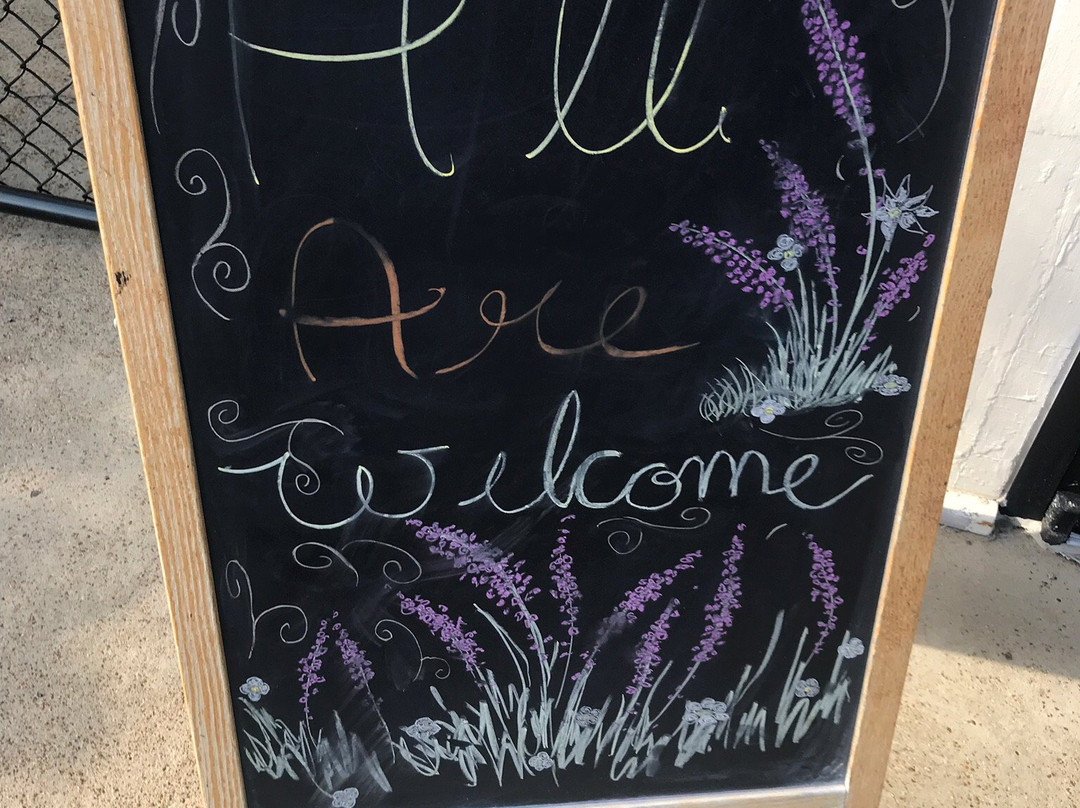 All
Are
Welcome